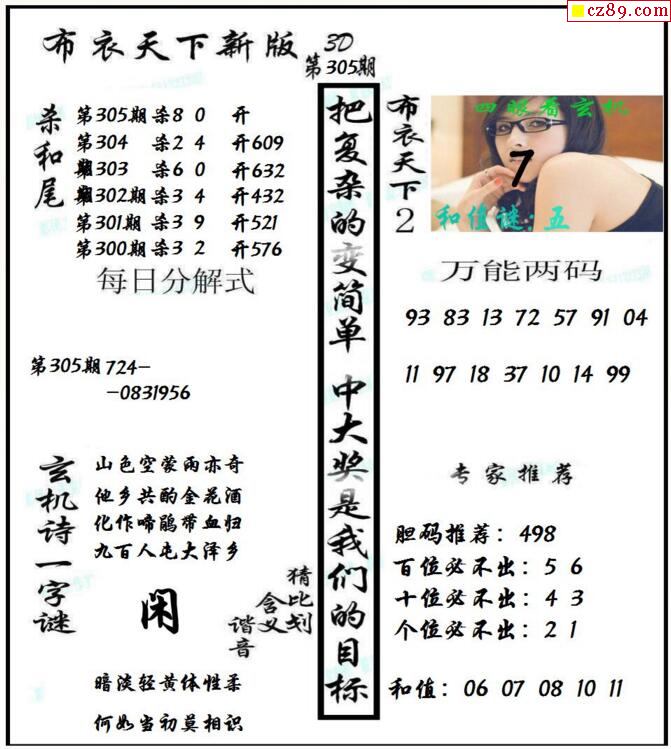 cz89.com
布衣天下新版 3D
第305期
杀和尾
第305期 杀8 0 开
第304 杀2 4 开609
303 杀6 0 开632
302期 杀3 4 开432
第301期 杀3 9 开521
第300期 杀3 2 开576
每日分解式
第305期 724-
-0831956
玄机诗一字谜
山色空蒙雨亦奇
他乡共酌金花酒
化作啼鹃带血归
九百人屯大泽乡
闲
猜比划
含义
谐音
暗淡轻黄体性柔
何如当初莫相识
把复杂的变简单 中大奖是我们的目标
布衣天下2
四眼看玄机
7
和值谜:五
万能两码
93 83 13 72 57 91 04
11 97 18 37 10 14 99
专家推荐
胆码推荐：498
百位必不出：5 6
十位必不出：4 3
个位必不出：2 1
和值：06 07 08 10 11